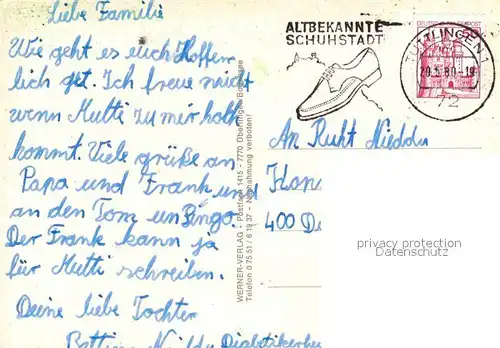 Liebe Familie
Wie geht es euch Hoffen
lich get. Ich freue mich
wenn Mutti zu mir holt
kommt. Viele grüße an
Papa und Frank und
an den Tom un Pingo.
Der Frank kann ja
für Mutti schreiben.
Deine liebe Tochter
Diabetikerhei
WERNER-VERLAG · Postfach 1415 - 7770 Überlingen/Bodensee
Tel. 0 75 51 / 6 19 37 - Nachahmung verboten!
ALTBEKANNTE
SCHUHSTADT
TUTTLINGEN 1
20.5.80-19
72
An
400 Dü
privacy protection
Datenschutz